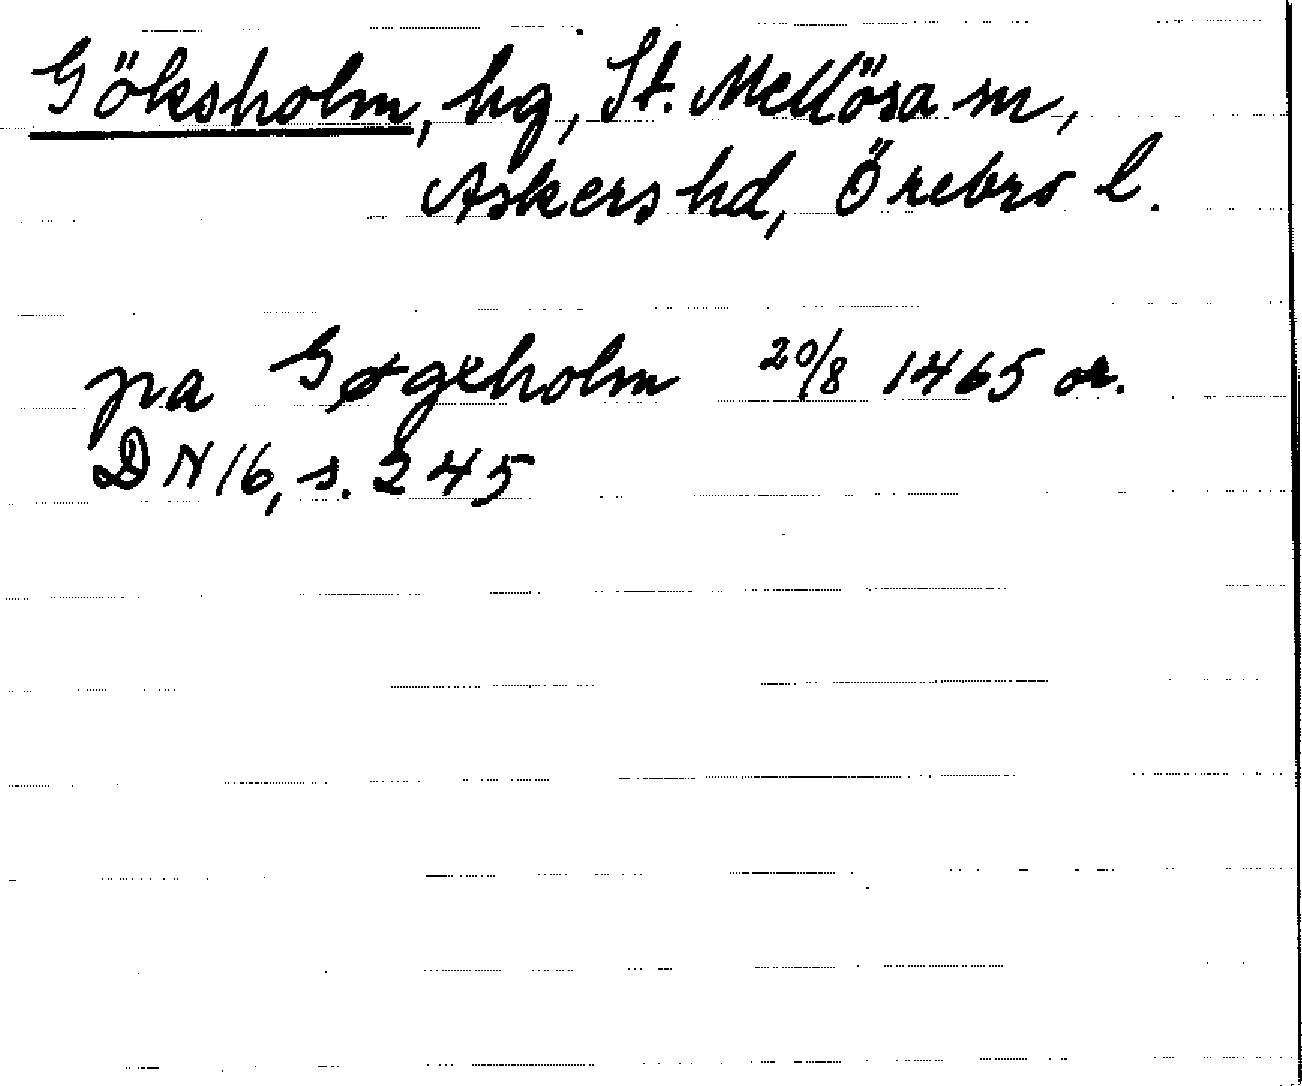 Göksholm, hg, St. Mellösa sn,
Askers hd, Örebro l.
pa Gøgxholm 20/8 1465 or.
DN 16, s. 245